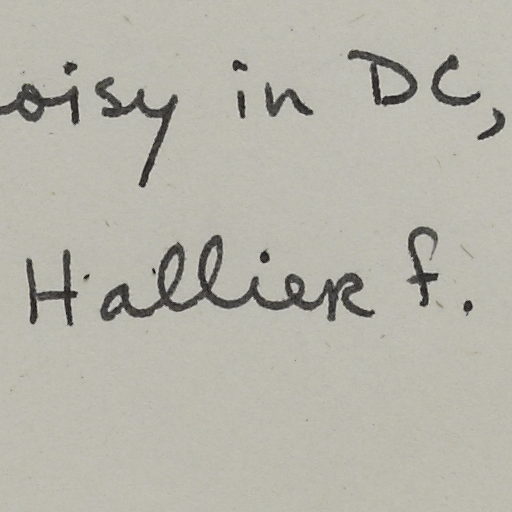 oisy in DC,
Hallier f.